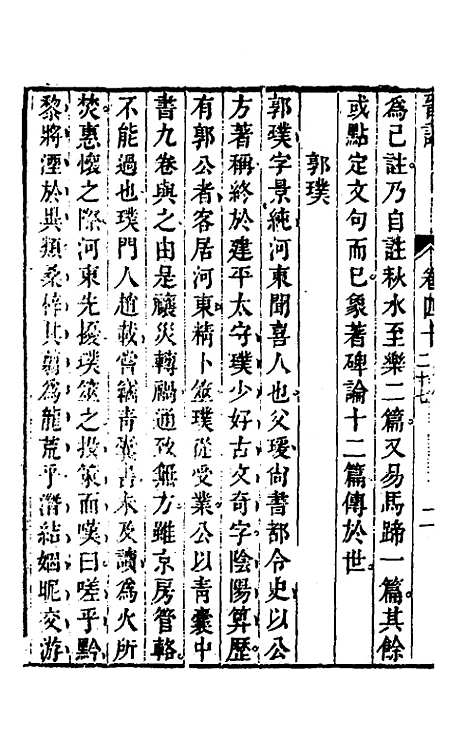 為已註乃自註秋水至樂二篇又易馬蹄一篇其餘
或點定文句而已象著碑論十二篇傳於世
郭璞
郭璞字景純河東聞喜人也父瑗尚書都令史以公
方著稱終於建平太守璞少好古文奇字陰陽算歷
有郭公者客居河東精卜筮璞從受業公以青囊中
書九卷與之由是禳災轉禍通致無方雖京房管輅
不能過也璞門人趙載嘗竊青囊書未及讀為火所
焚惠懷之際河東先擾璞筮之投策而嘆曰嗟乎黔
黎將湮於異類桑梓其翦為龍荒乎潛結姻昵交游
卷四十二十七
二